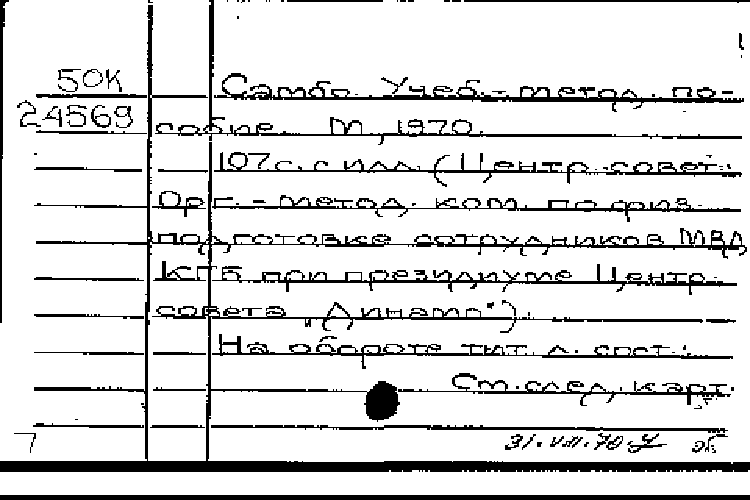 50К
24569
Самбо. Учеб.-метод. по-
собие. М., 1970.
107 с. с илл. (Центр. совет.
Орг.-метод. ком. по физ.
подготовке сотрудников МВД
КГБ при президиуме Центр.
совета „Динамо")
На обороте тит. л. сост.:
См. след. карт.
7 31.VII.70.